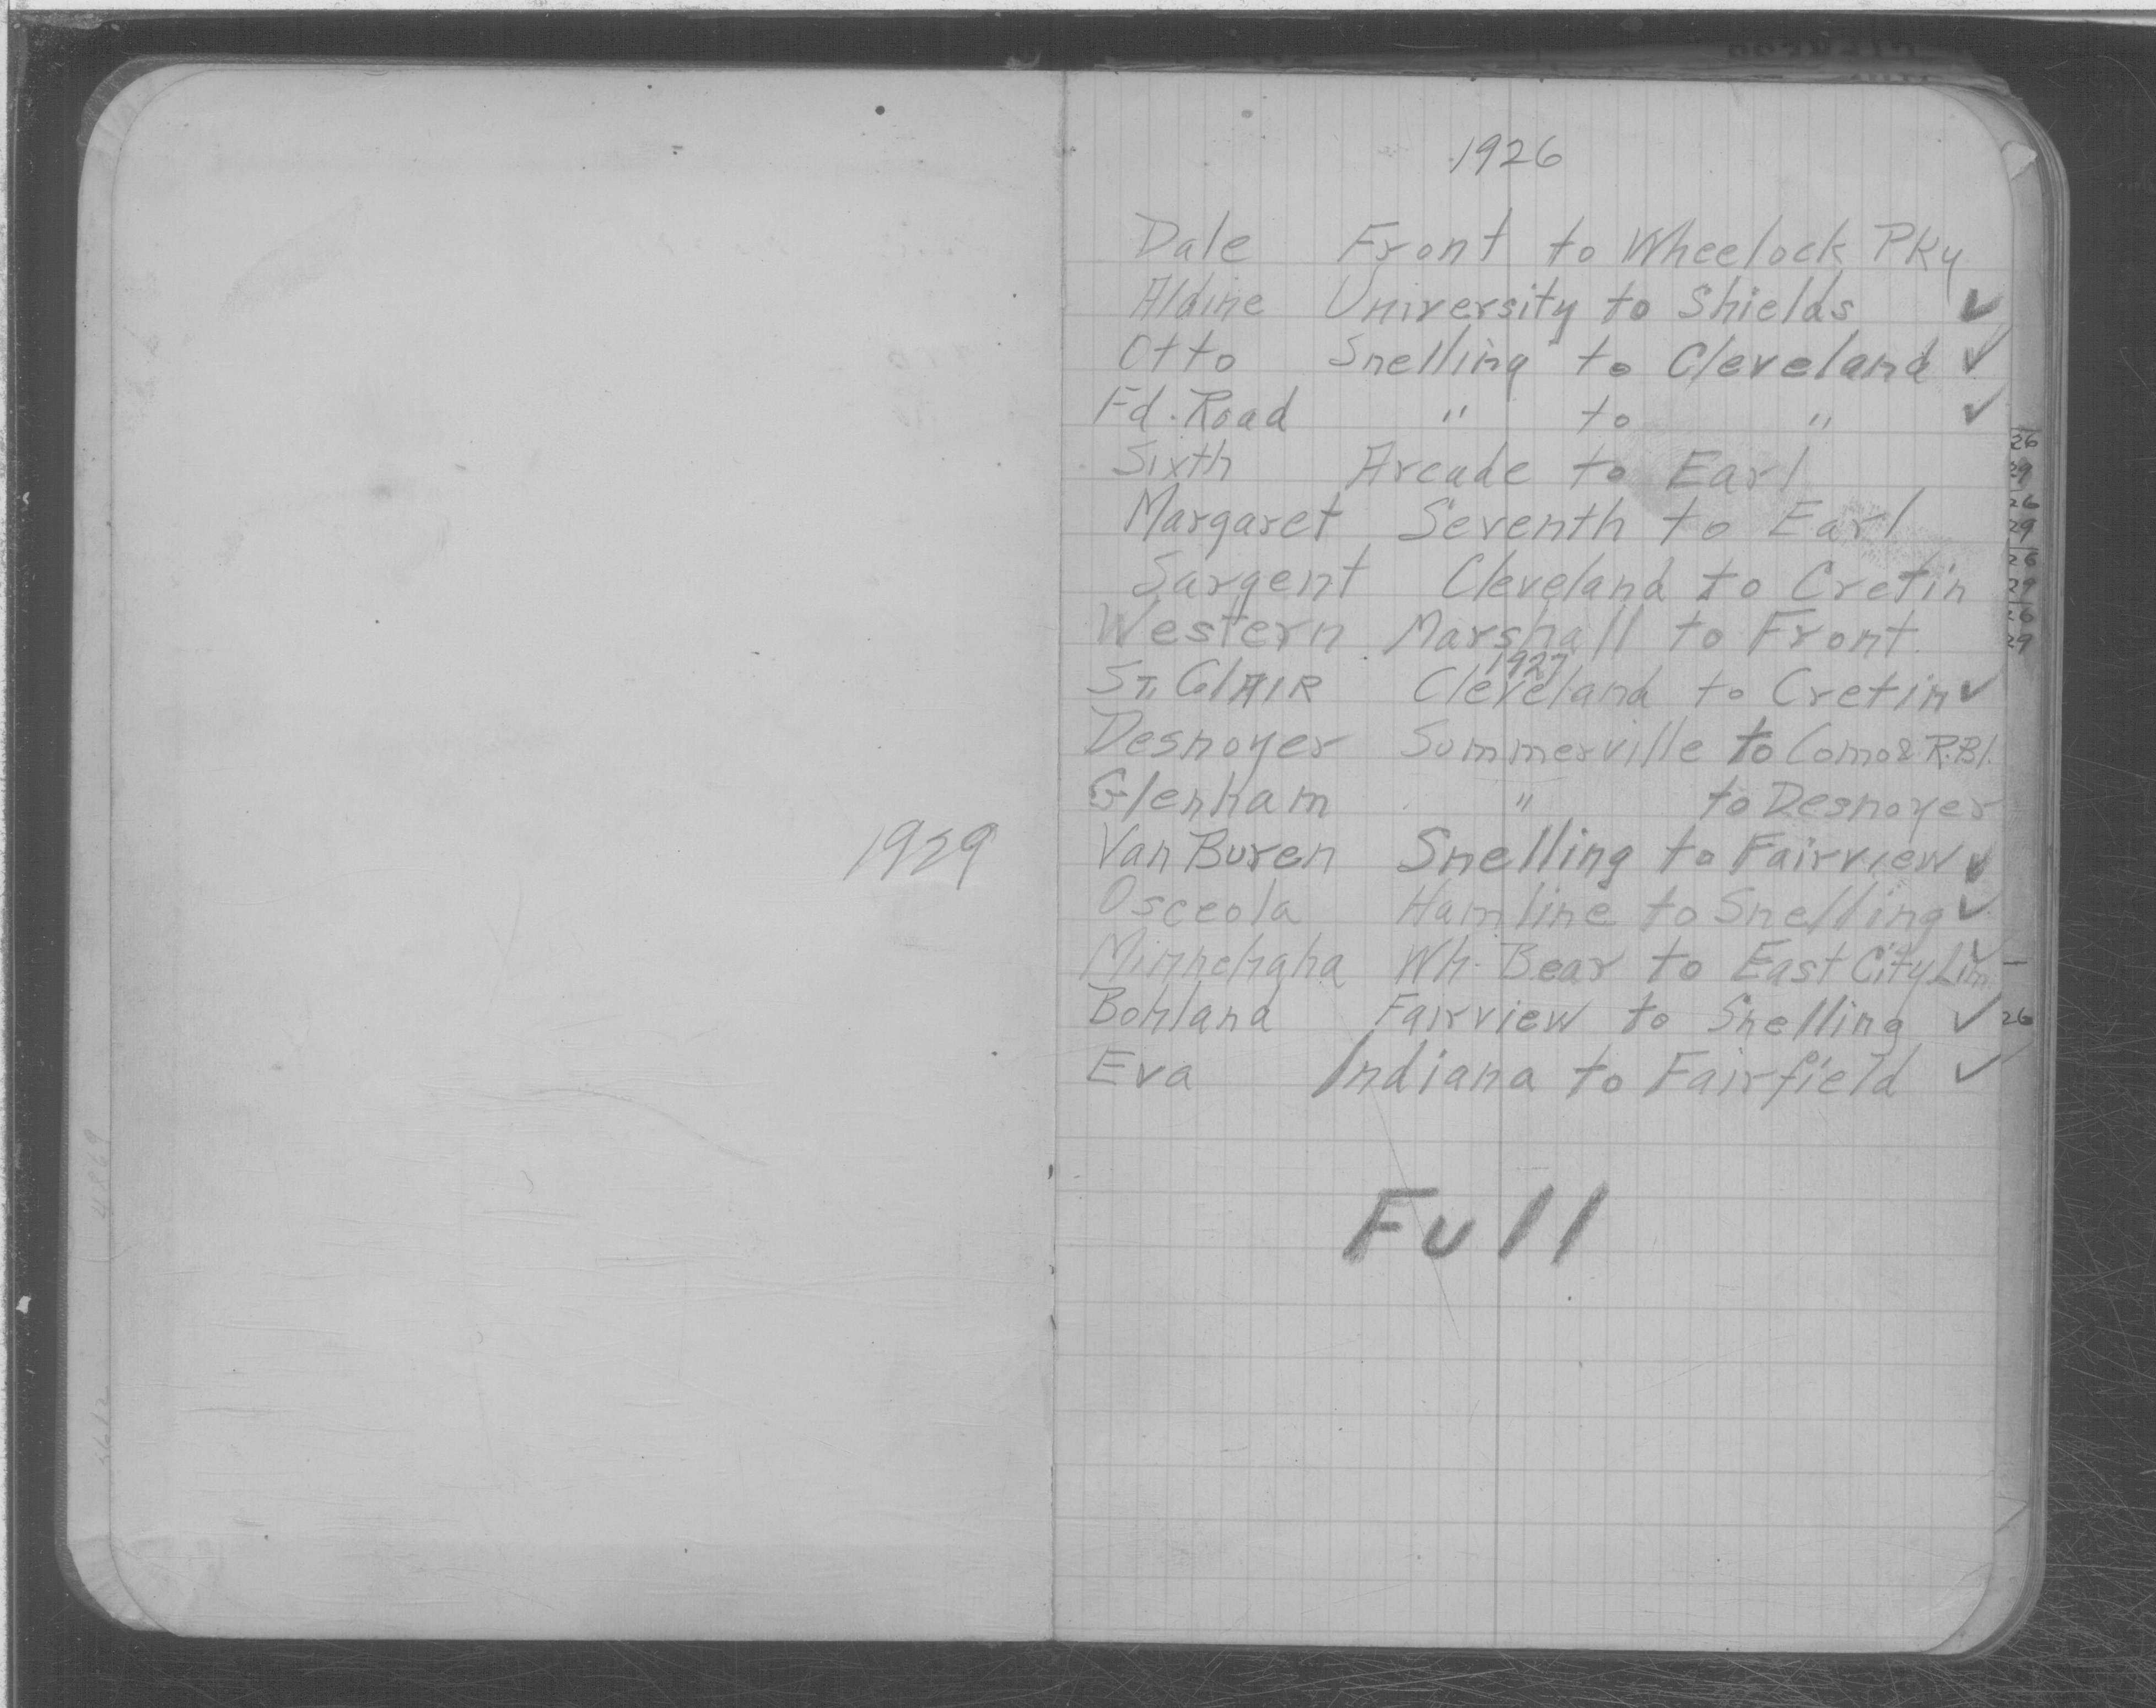 1929
1926
Dale Front to Wheelock Pky
Aldine University to Shields ✓
Otto Snelling to Cleveland ✓
Fd. Road " to " ✓
Sixth Arcade to Earl
Margaret Seventh to Earl
Sargent Cleveland to Cretin
Western Marshall to Front
1927
St. Clair Cleveland to Cretin ✓
Desnoyer Summerville to Como & R.Bl.
Glenham " to Desnoyer
Van Buren Snelling to Fairview ✓
Osceola Hamline to Snelling ✓
Minnehaha Wh. Bear to East City Lim. ✓ –
Bohland Fairview to Snelling ✓ 26
Eva Indiana to Fairfield ✓
Full
26
29
26
29
26
29
26
29